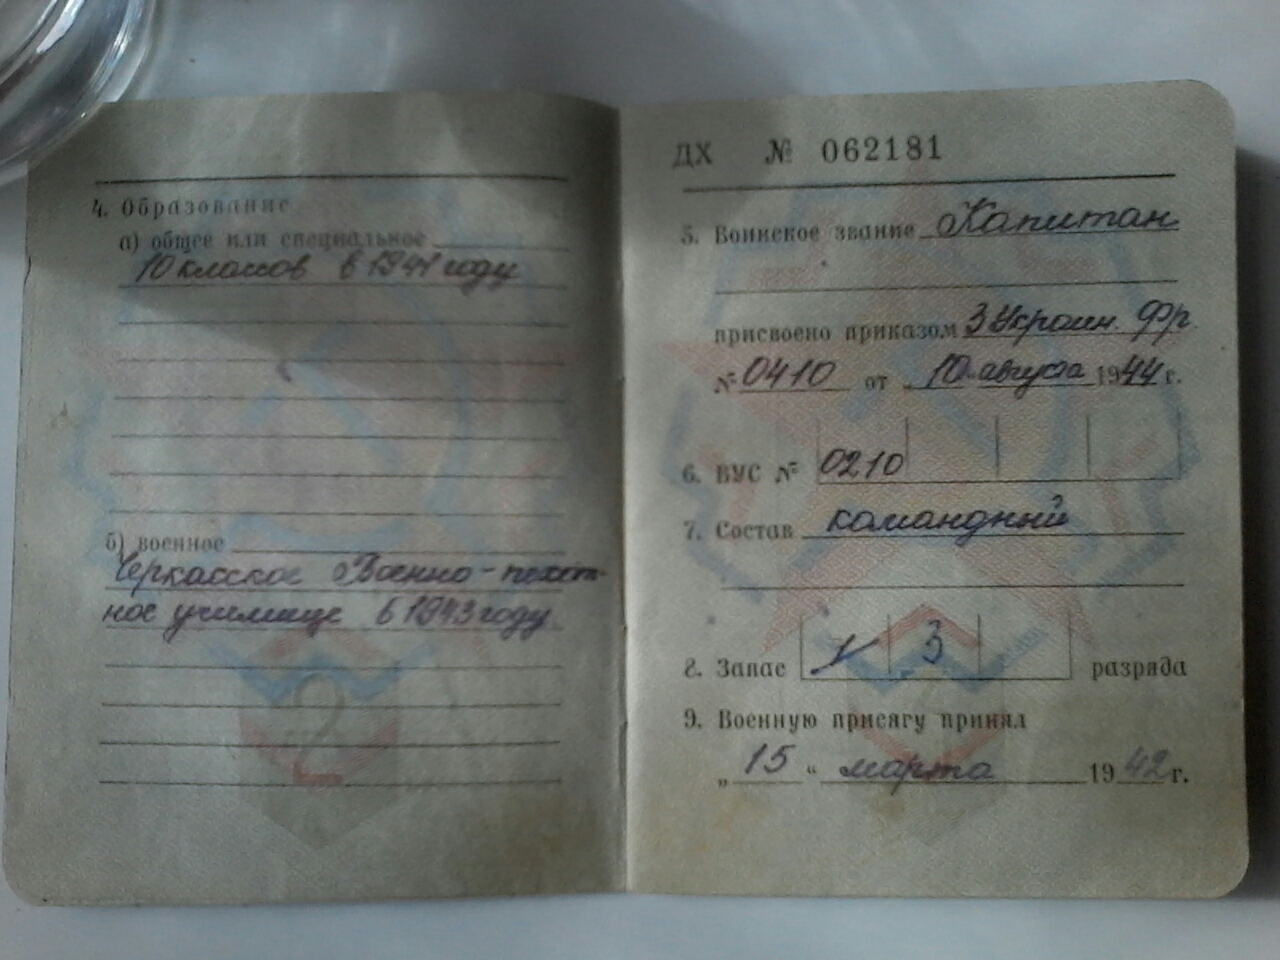 4. Образование
а) общее или специальное
10 классов в 1941 году
б) военное
Черкасское Военно-пехот-
ное училище в 1943 году
ДХ № 062181
5. Воинское звание Капитан
присвоено приказом 3 Украин. Фр.
№ 0410 от „10“ августа 1944 г.
6. ВУС № 0210
7. Состав командный
8. Запас 3 разряда
9. Военную присягу принял
„15“ марта 1942 г.